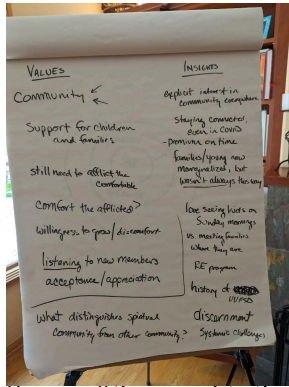 VALUES
Community
Support for children
and families
still need to afflict the
comfortable
comfort the afflicted?
willingness to grow/discomfort
listening to new members
acceptance/appreciation
what distinguishes spiritual
community from other community?
INSIGHTS
explicit interest in
community everywhere
staying connected,
even in COVID
- premium on time
families/young now
marginalized, but
wasn't always this way
love seeing kids on
Sunday mornings
vs. meeting families
where they are
RE program
history of
UUFSD
discernment
Systemic challenges